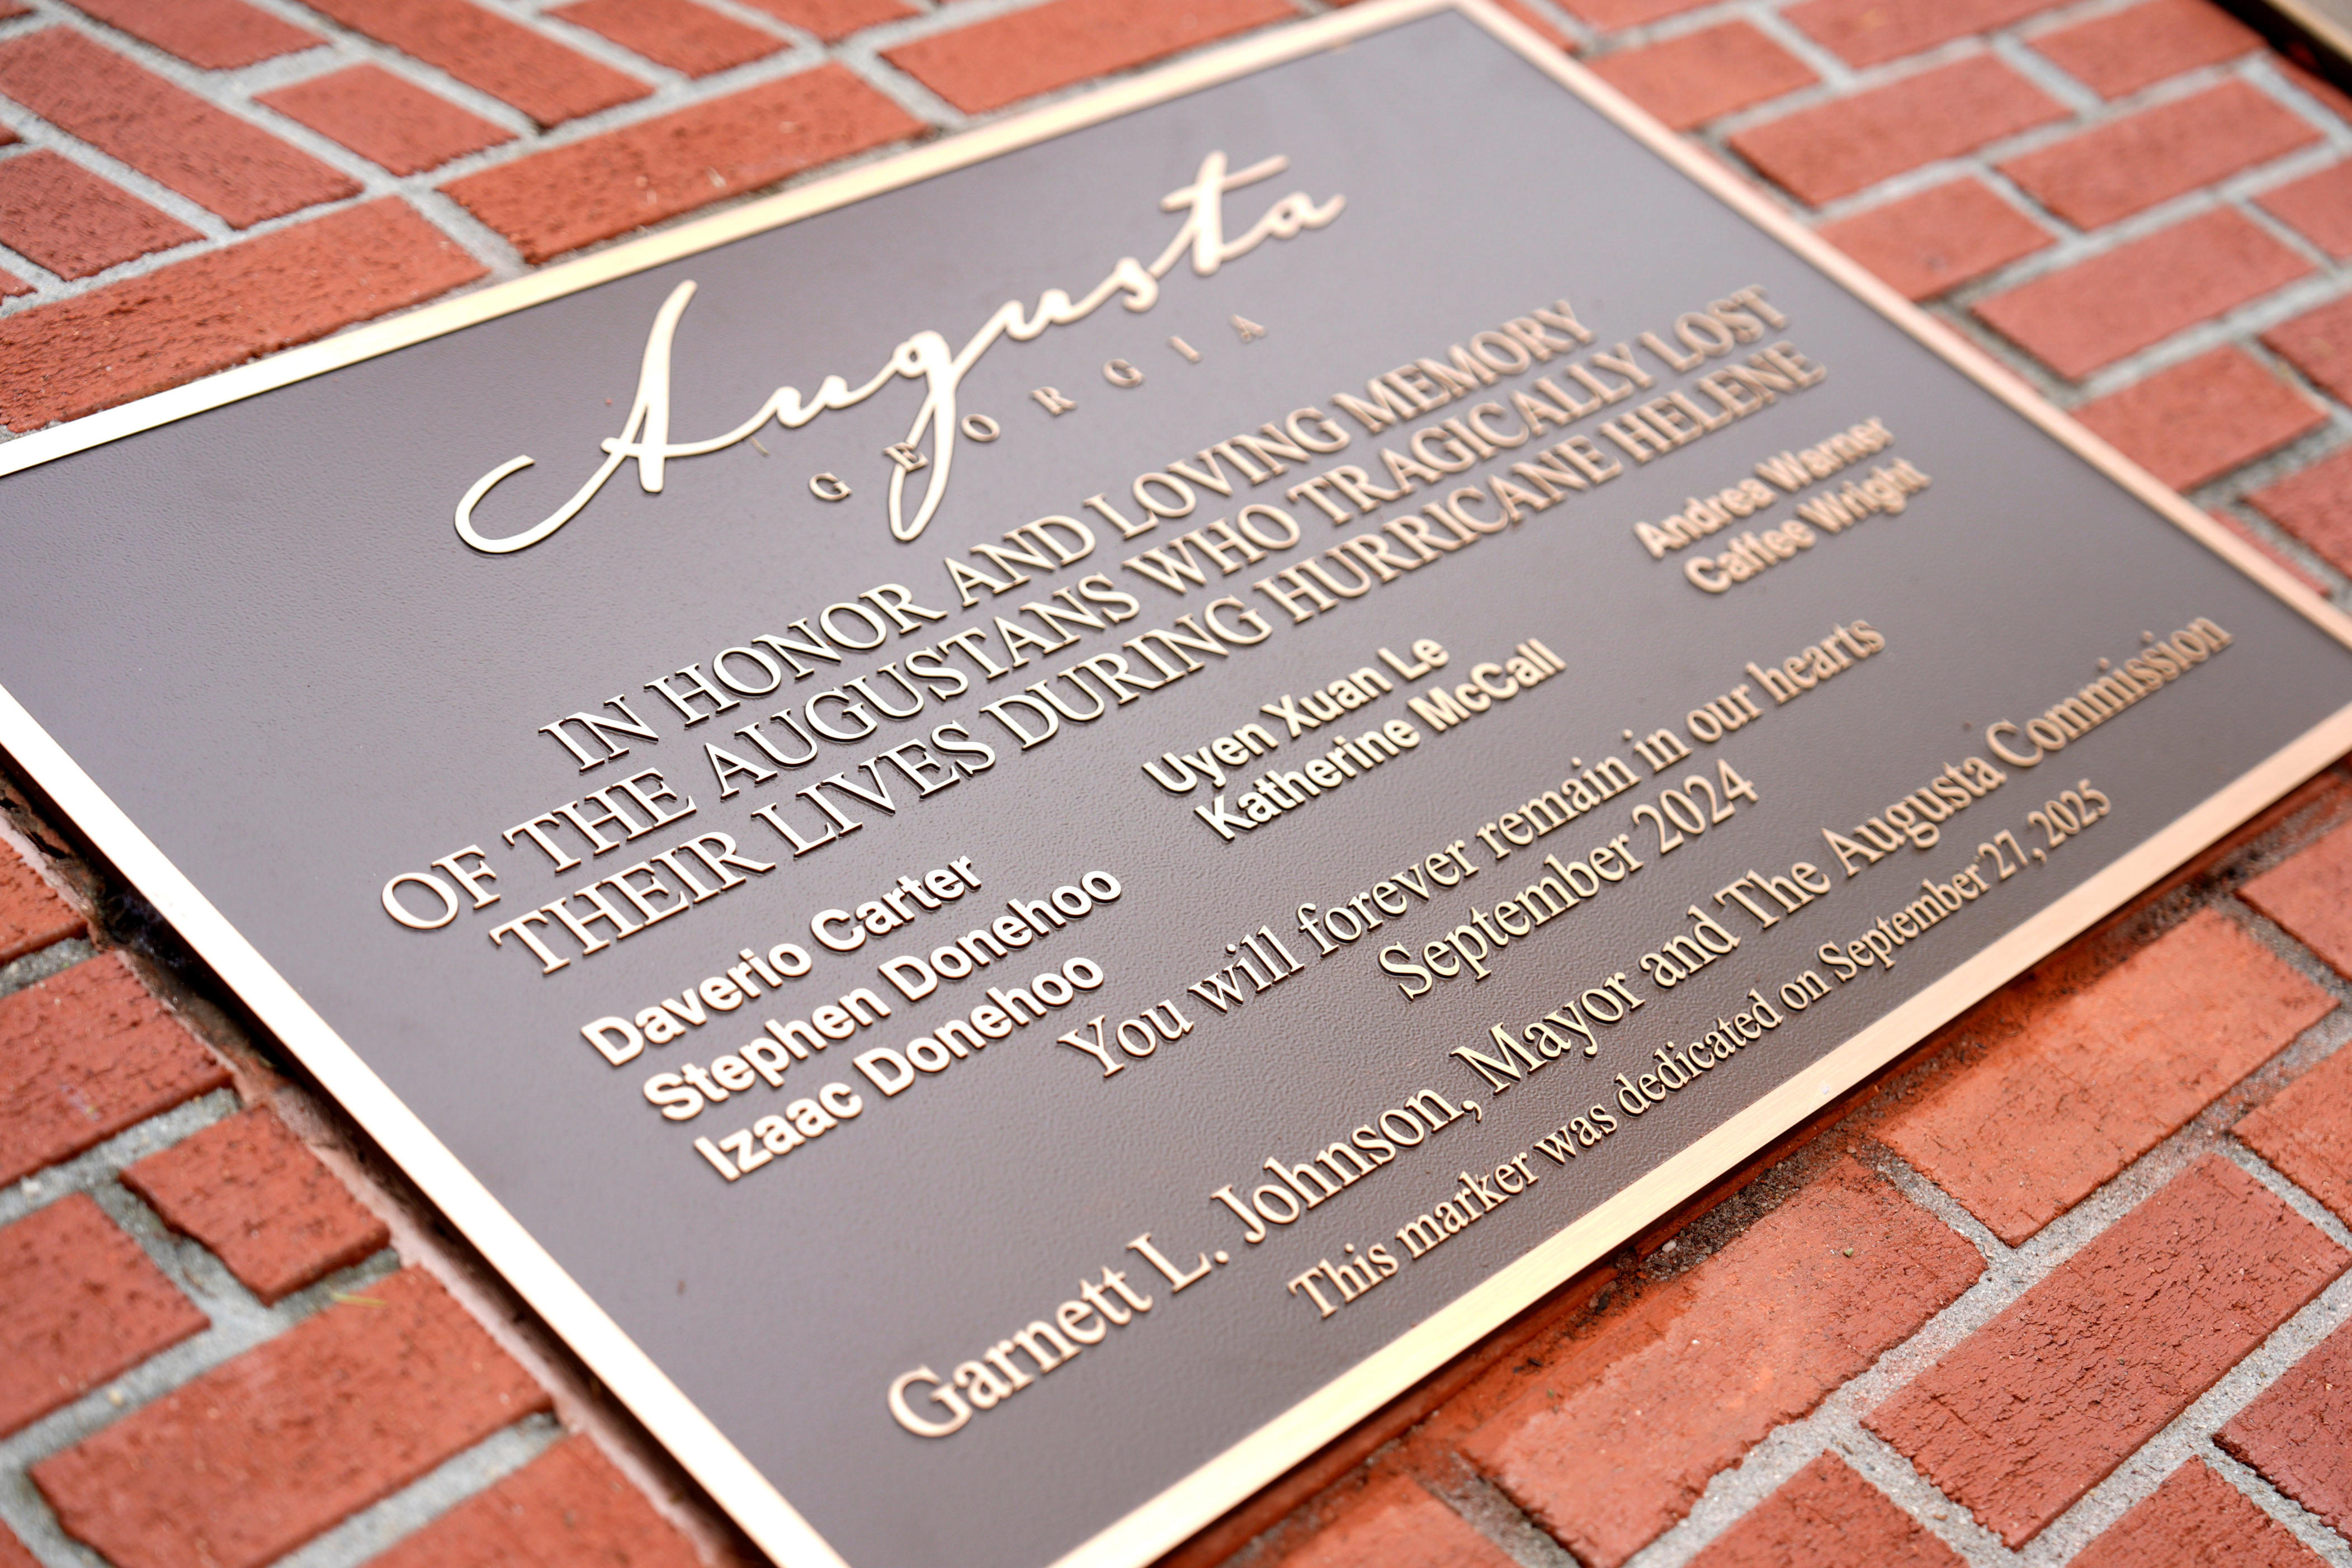 Augusta
GEORGIA
IN HONOR AND LOVING MEMORY
OF THE AUGUSTANS WHO TRAGICALLY LOST
THEIR LIVES DURING HURRICANE HELENE
Daverio Carter
Stephen Donehoo
Izaac Donehoo
Uyen Xuan Le
Katherine McCall
Andrea Warner
Caffee Wright
You will forever remain in our hearts
September 2024
Garnett L. Johnson, Mayor and The Augusta Commission
This marker was dedicated on September 27, 2025